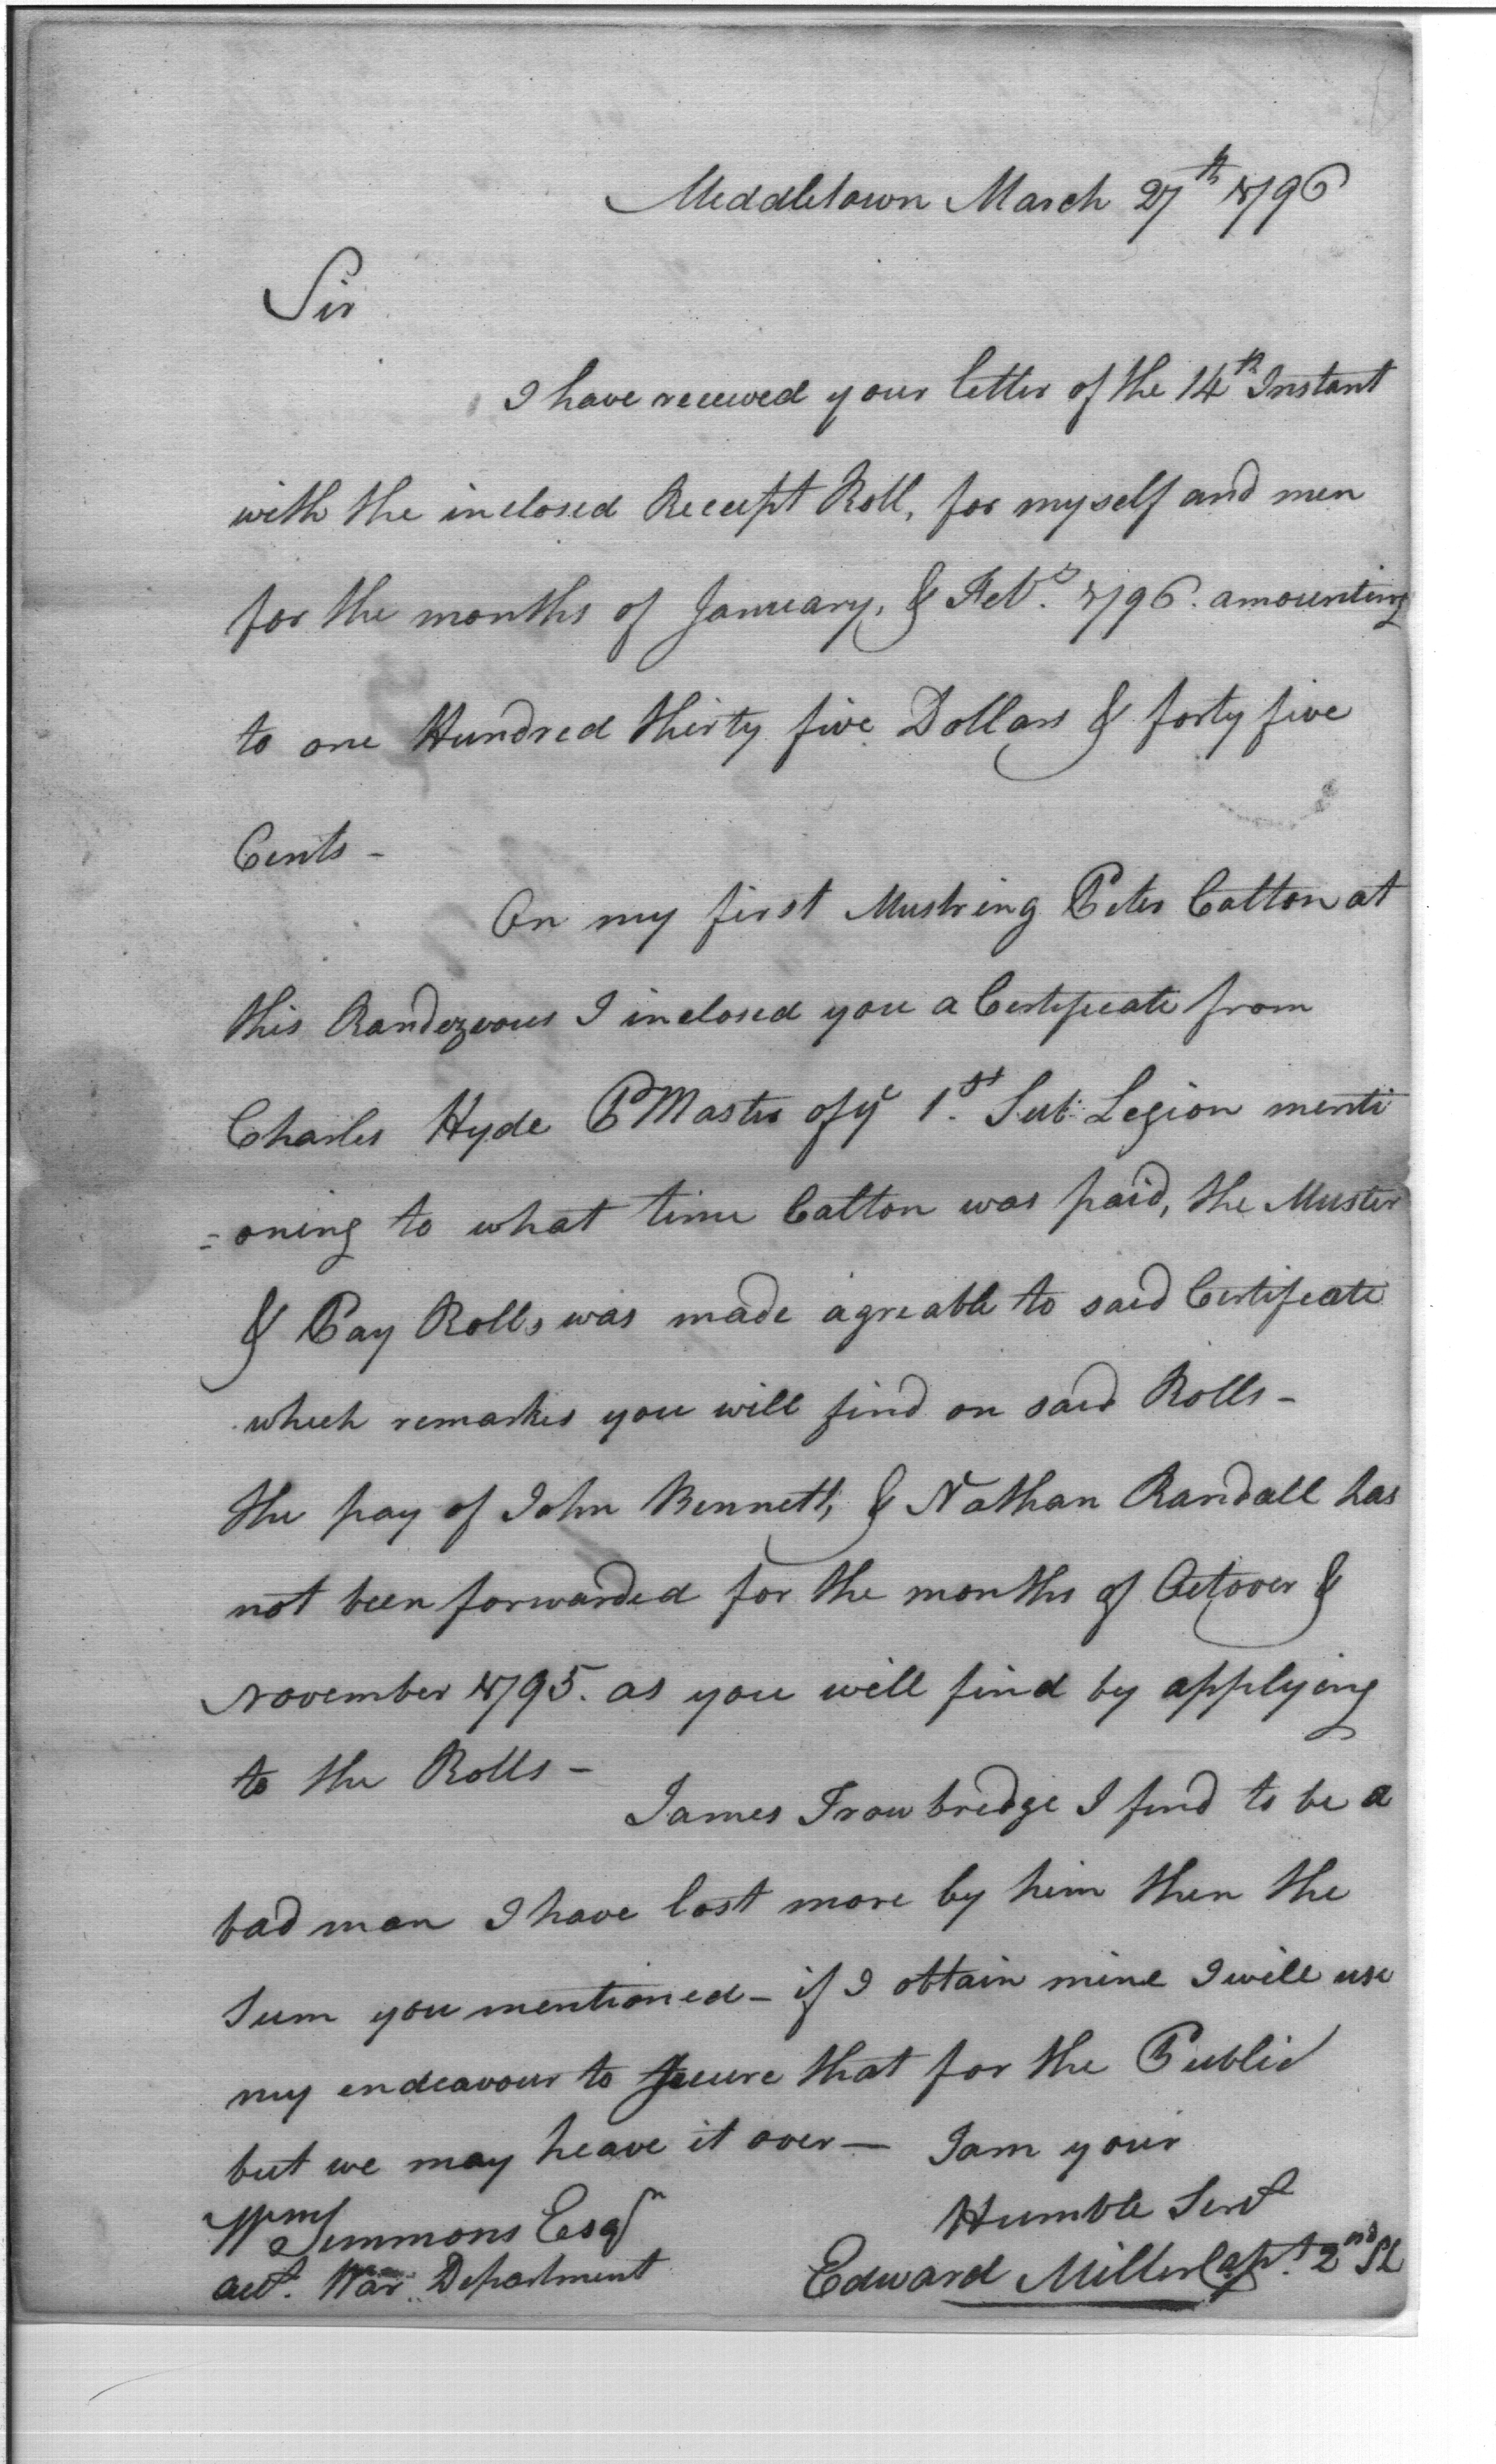 Middletown March 27th 1796
Sir
I have received your letter of the 14th Instant
with the inclosed Receipt Roll, for myself and men
for the months of January, & Feby. 1796. amounting
to one Hundred thirty five Dollars & forty five
Cents -
On my first Mustring Peter Catton at
this Randezvous I inclosed you a Certificate from
Charles Hyde P Master of ye 1st. Sub: Legion menti
= oning to what time Catton was paid, the Muster
& Pay Rolls was made agreable to said Certificate
which remarks you will find on said Rolls -
the pay of John Bennett, & Nathan Randall has
not been forwarded for the months of October &
November 1795. as you will find by applying
to the Rolls -
James Trowbridge I find to be a
bad man I have lost more by him then the
Sum you mentioned - if I obtain mine I will use
my endeavour to secure that for the Public
but we may heave it over — I am your
Humble Servt
Wm Simmons Esqr
Acct. War Department
Edward Miller Capt. 2nd SL